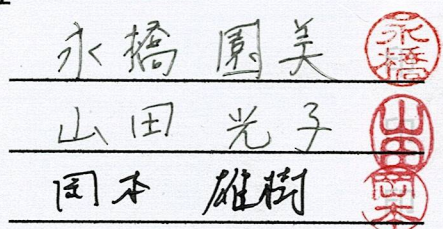 永橋 園美 永橋
山田 光子 山田
岡本 雄樹 岡本